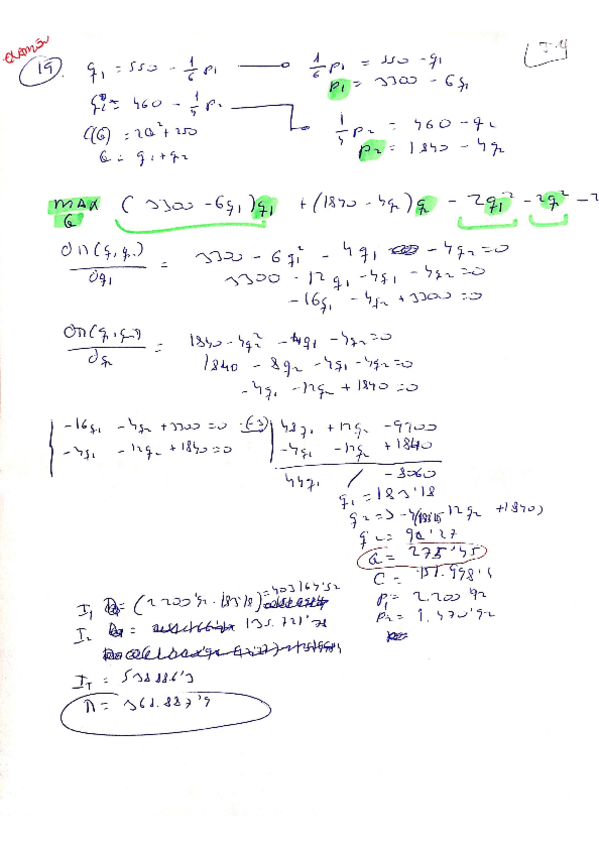 EXAMEN
19. q1 = 550 - 1/6 p1 → 1/6 p1 = 550 - q1
p1 = 3300 - 6q1
q2 = 460 - 1/4 p2 → 1/4 p2 = 460 - q2
p2 = 1840 - 4q2
C(Q) = 2Q² + 250
Q = q1 + q2
MAX Q (3300 - 6q1)q1 + (1840 - 4q2)q - 2q1² - 2q² - 2
∂Π(q1, q2)/∂q1 = 3300 - 6q1² - 4q1 - 4q2 = 0
3300 - 12q1 - 4q1 - 4q2 = 0
-16q1 - 4q2 + 3300 = 0
∂Π(q1, q2)/∂q2 = 1840 - 4q2² - 4q1 - 4q2 = 0
1840 - 8q2 - 4q1 - 4q2 = 0
-4q1 - 12q2 + 1840 = 0
-16q1 - 4q2 + 3300 = 0 (-3) 48q1 + 12q2 - 9900
-4q1 - 12q2 + 1840 = 0 -4q1 - 12q2 + 1840
44q1 / -8060
q1 = 183'18
q2 = 92'27
Q = 275'45
C = 151.998'1
p1 = 2.200'92
I1 = (2200'92 · 183'18) = 403164'52
p2 = 1.470'92
I2 = 135.721'78
IT = 538886'3
Π = 368.887'9